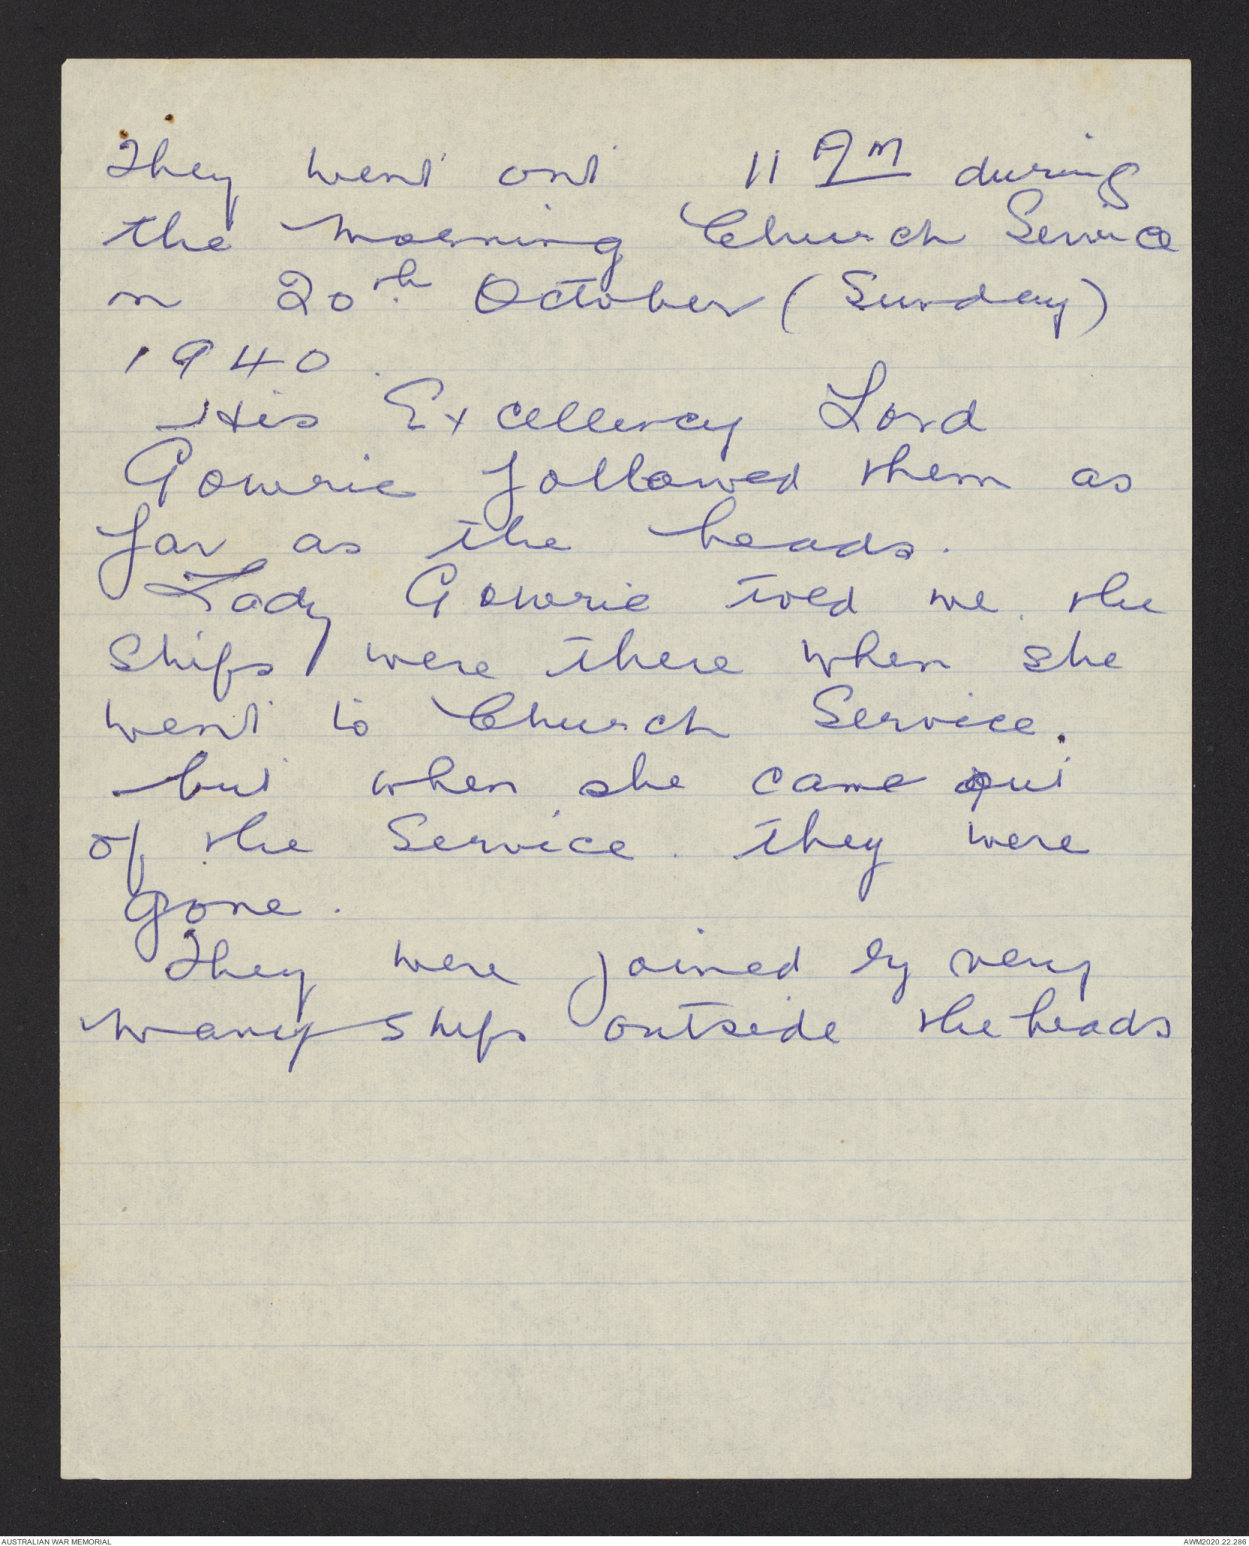 They went out 11 AM during
the morning Church Service
on 20th October (Sunday)
1940.
His Excellency Lord
Gowrie followed them as
far as the heads.
Lady Gowrie told me the
ships were there when she
went to Church Service.
but when she came out
of the Service. they were
gone.
They were joined by very
many ships outside the heads
AUSTRALIAN WAR MEMORIAL
AWM2020.22.286